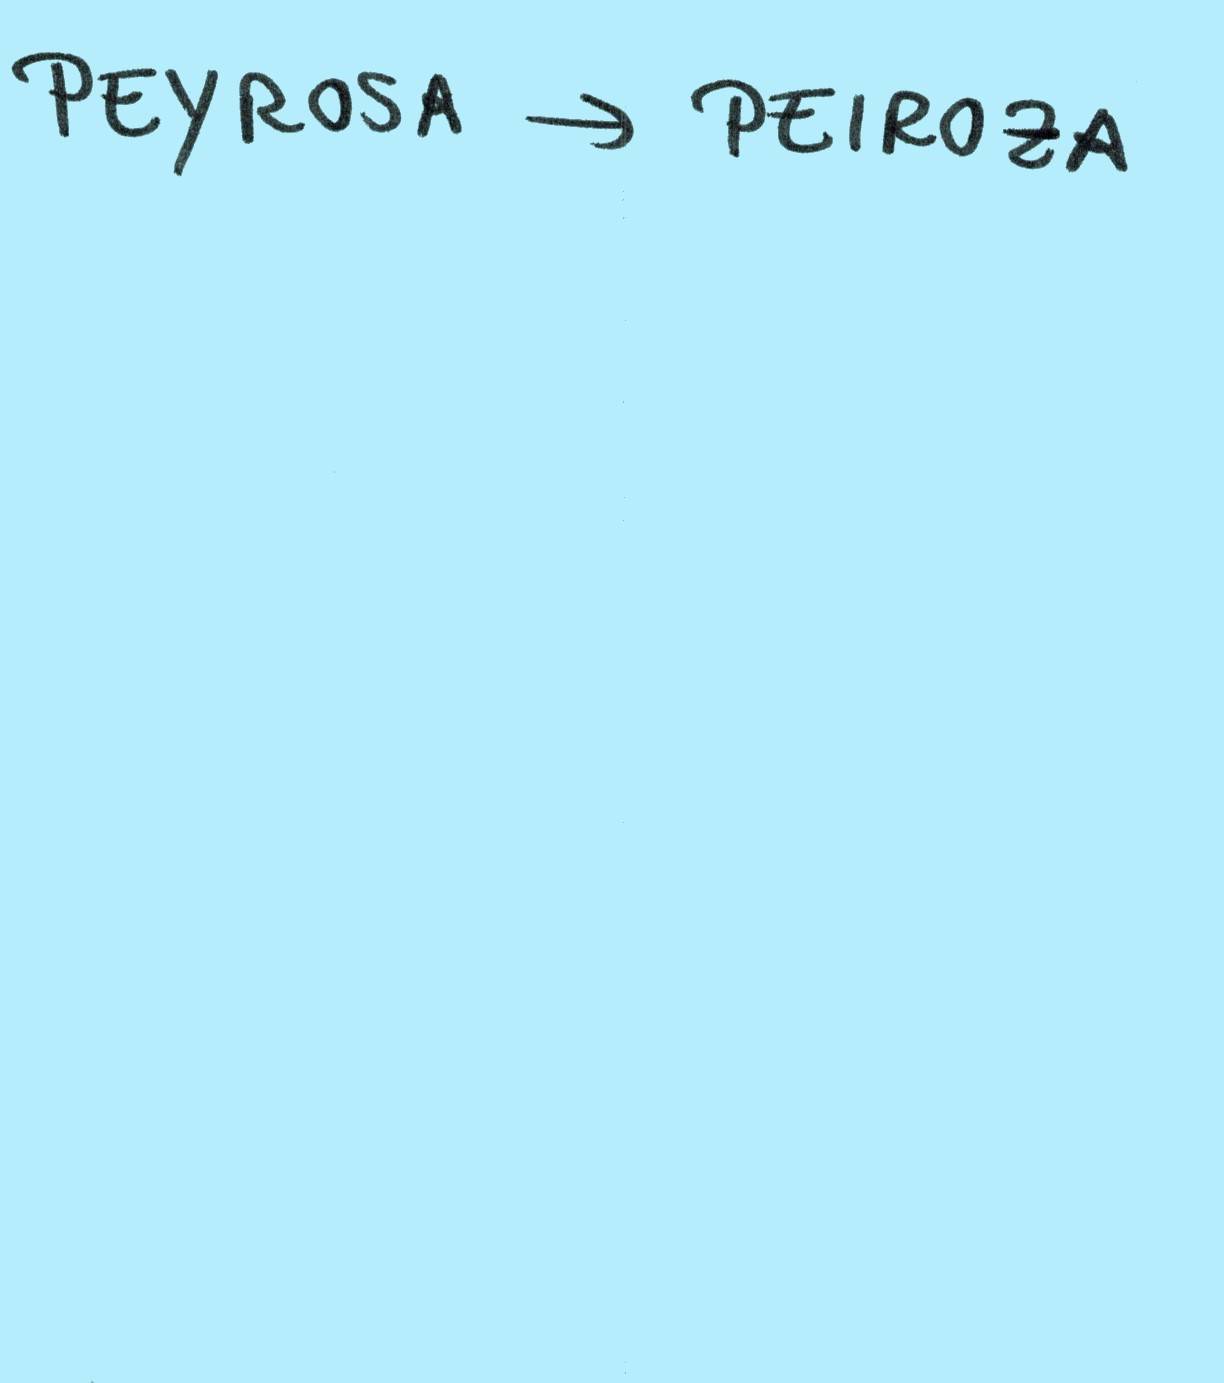 PEYROSA → PEIROZA